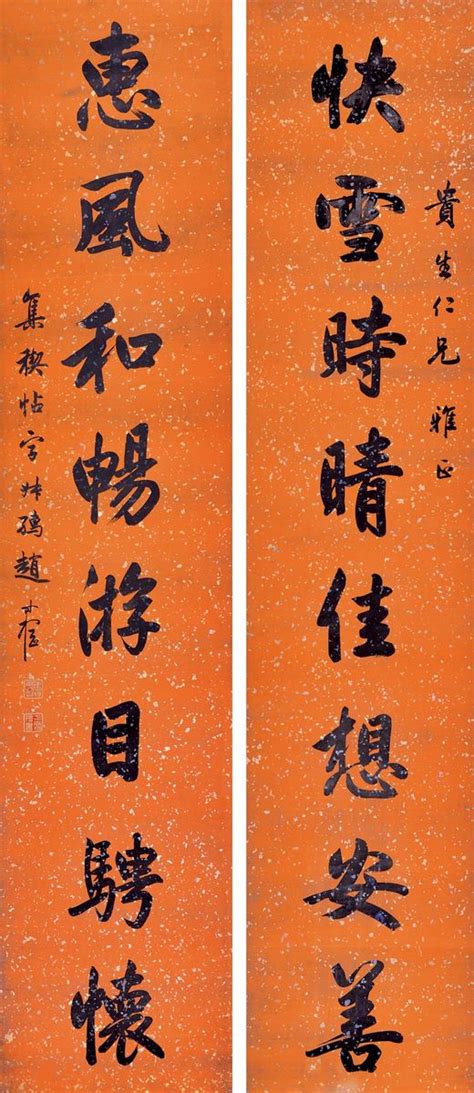 貴生仁兄 雅正
快雪時晴佳想安善
惠風和暢游目騁懷
集禊帖字叔孺趙時棡